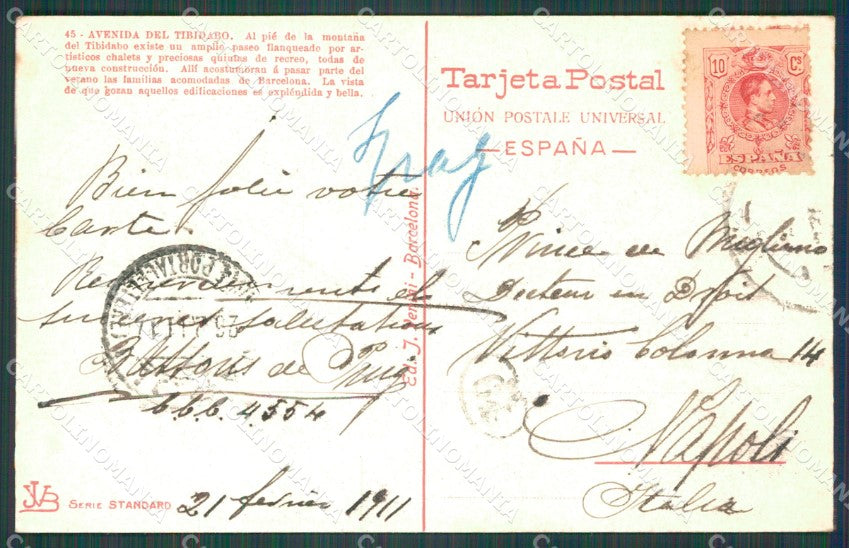 45 - AVENIDA DEL TIBIDABO. Al pié de la montaña
del Tibidabo existe un amplio paseo flanqueado por ar-
tísticos chalets y preciosas quintas de recreo, todas de
nueva construcción. Allí acostumbran á pasar parte del
verano las familias acomodadas de Barcelona. La vista
de que gozan aquellos edificaciones es expléndida y bella.
Bien jolie votre
carte.
Remerciements et
sincères salutations
de Puig
b.b.b. 4554
21 1911
JVB
SERIE STANDARD
Ed. J. - Barcelona.
Tarjeta Postal
UNIÓN POSTALE UNIVERSAL
— ESPAÑA —
10 Cs
ESPAÑA
CORREOS
Prince de Migliano
Docteur en Droit
Vittorio Colonna 14
Napoli
Italia
CARTOLINOMANIA